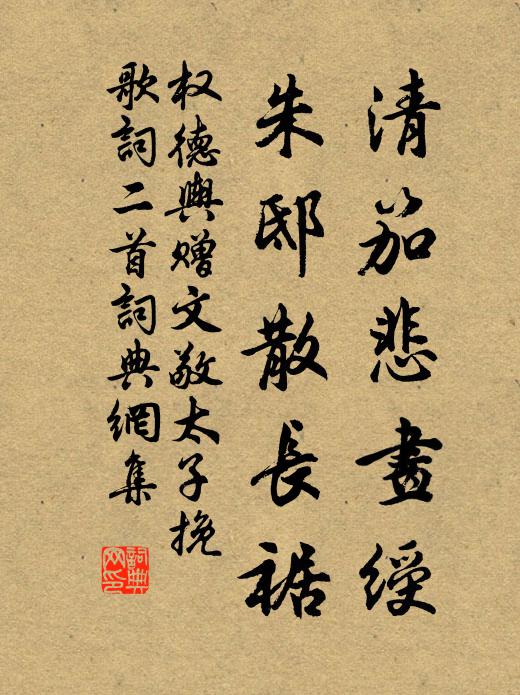 清笳悲畫綬
朱邸散長裾
权德輿贈文敬太子挽
歌詞二首詞典網集
詞典
网印